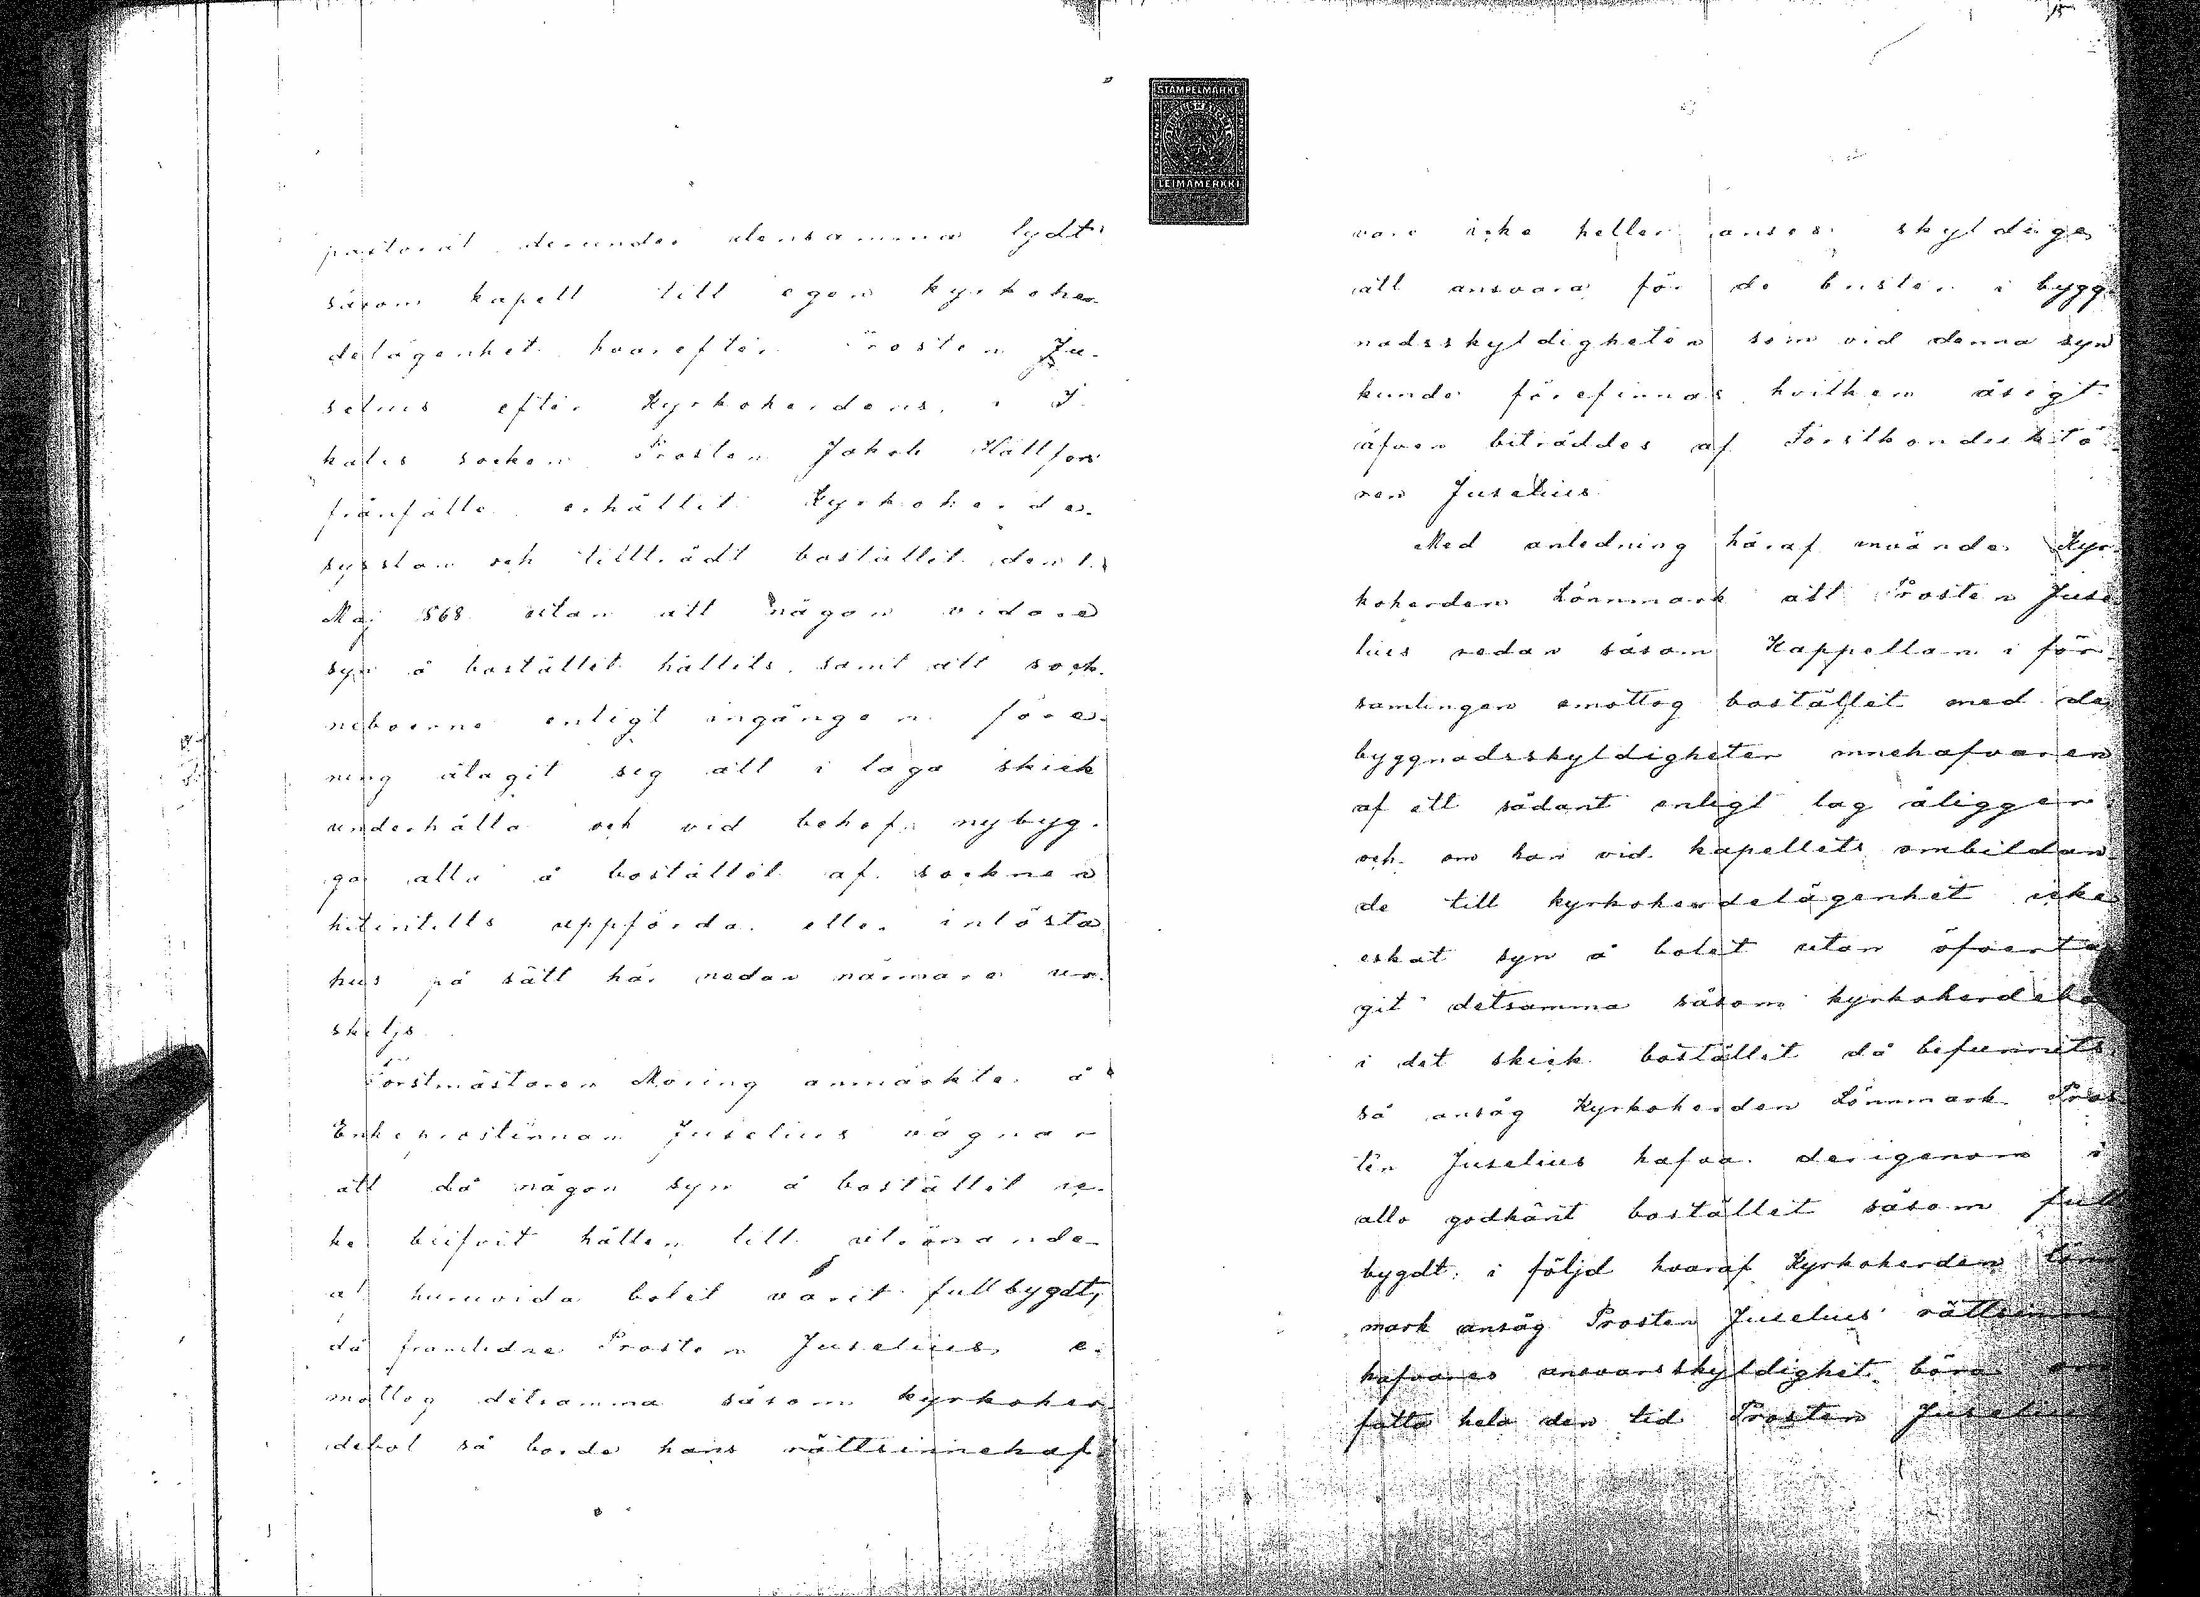 pastorat derunder densamma lydt
såsom kapell till egen kyrkoher-
delägenhet hvarefter Prosten Ju-
selius efter Kyrkoherdens i I
kalis socken Prosten Jakob Hällfors
frånfälle erhållit Kyrkoherde-
sysslan och tillträdt bostället den 1
Maj 1868 utan att någon vidare
syn å bostället hållits samt att sock-
neboerne enligt ingången före-
ning ålagit sig att i laga skick
underhålla och vid behof nybyg-
ga alla å bostället af socknen
hitintills uppförda eller inlösta
hus på sätt här nedan närmare ur-
skiljs.
Forstmästaren Moring anmärkte å
Enkeprostinnan Juselius vägnar
att då någon syn å bostället ic-
ke blifvit hållen till utrönande
af huruvida bolet varit fullbygdt,
då framlidne Prosten Juselius e-
mottog detsamma såsom kyrkoher-
debol så borde hans rättsinnehaf-
vare icke heller anses skyldige
att ansvara för de brister i bygg-
nadsskyldigheten som vid denna syn
kunde förefinnas hvilken åsigt
äfven biträddes af Forstkonduktö-
ren Juselius.
Med anledning häraf invände Kyr-
koherden Lönnmark att Prosten Juse-
lius redan såsom Kappellan i för-
samlingen emottog bostället med de
byggnadsskyldigheter innehafvaren
af ett sådant enligt lag åligger
och om han vid kapellets ombildan-
de till kyrkoherdelägenhet icke
eskat syn å bolet utan öfverta-
git detsamma såsom kyrkoherdebo
i det skick bostället då befunnits
så ansåg Kyrkoherden Lönnmark Pros-
ten Juselius hafva derigenom i
allo godkänt bostället såsom full
bygdt; i följd hvaraf Kyrkoherden Lönn
mark ansåg Prosten Juselius rättsinne
hafvares ansvarsskyldighet böra om
fatta hela den tid Prosten Juselius
STÄMPELMÄRKE
LEIMAMERKKI